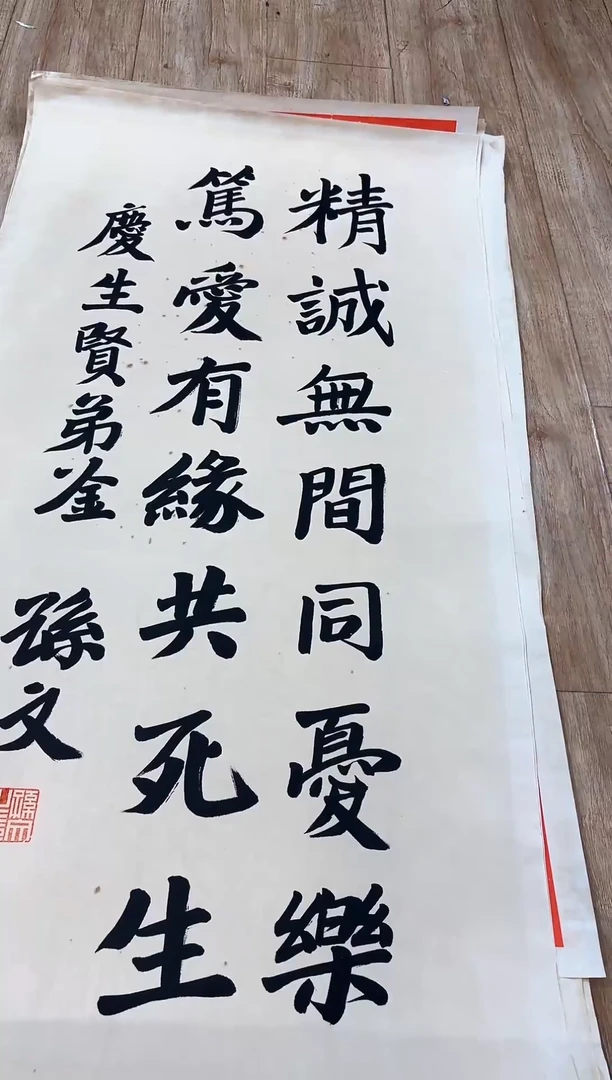 精誠無間同憂樂
篤愛有緣共死生
慶生賢弟
孫文